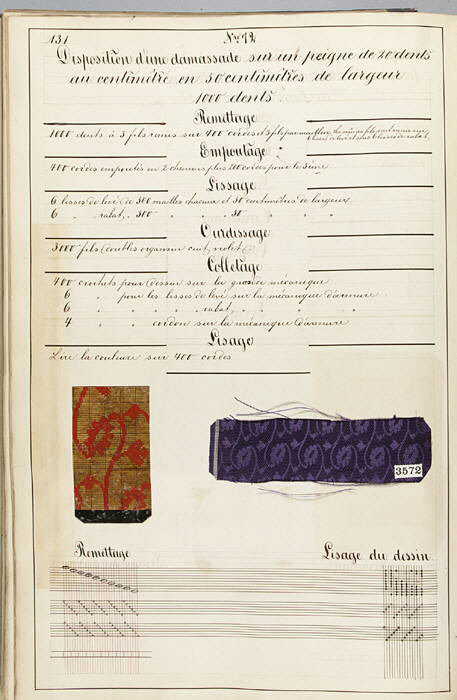 131
No. 72
Disposition d'une damassade sur un peigne de 20 dents
au centimètre en 50 centimètres de largeur
1000 dents
Remettage
1000 dents à 3 fils remis sur 400 cordes et
Empoutage
400 cordes empoutés en 2 chemins plus 200 cordes pour le 3ème
Lissage
6 lisses de levé de 500 mailles chacune et 50 centimètres de largeur
6 " rabat, 500 " " 50 " " "
Ourdissage
3000 fils doubles organsin cuit, violet
Colletage
400 crochets pour dessin sur la grande mécanique
6 " pour les lisses de levé sur la mécanique d'armure
6 " " " rabat, " " " "
4 " " cordon sur la mécanique d'armure
Lisage
Lire la couleur sur 400 cordes
3572
Remettage
Lisage du dessin